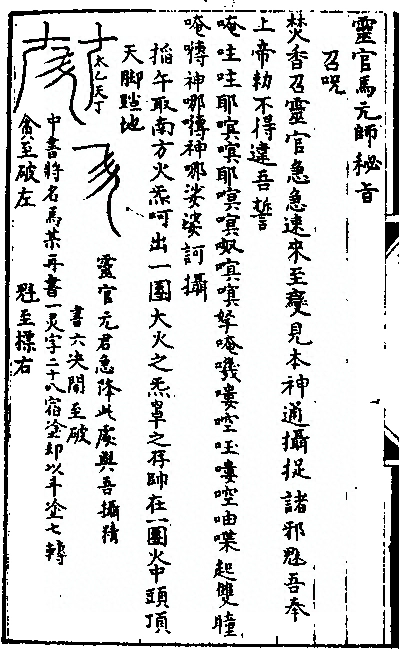 靈官馬元帥秘旨
召咒
焚香召靈官急急速來至變見本神通攝捉諸邪魁吾奉
上帝勅不得違吾誓
唵吽吽耶嗔嗔耶嗔嗔奴嗔嗔拏唵嘰嘍啌玨嘍啌㖤喋起雙瞳
唵慱神哪慱神哪娑婆訶攝
掐午取南方火炁呵出一團大火之炁罩之存帥在一團火中頭頂
天脚踏地
太乙天丁
靈官元君急降此處與吾攝精
書六決開至破
中書將名馬某再書一灵字二十八宿塗却以斗塗七轉
貪至破左
魁至摽右